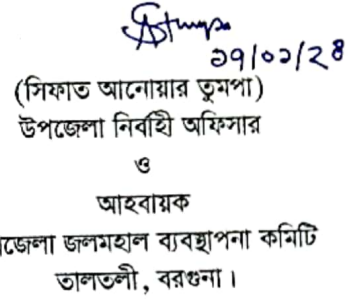 ২৭/০১/২৪
(সিফাত আনোয়ার তুমপা)
উপজেলা নির্বাহী অফিসার
ও
আহবায়ক
জেলা জলমহাল ব্যবস্থাপনা কমিটি
তালতলী, বরগুনা।